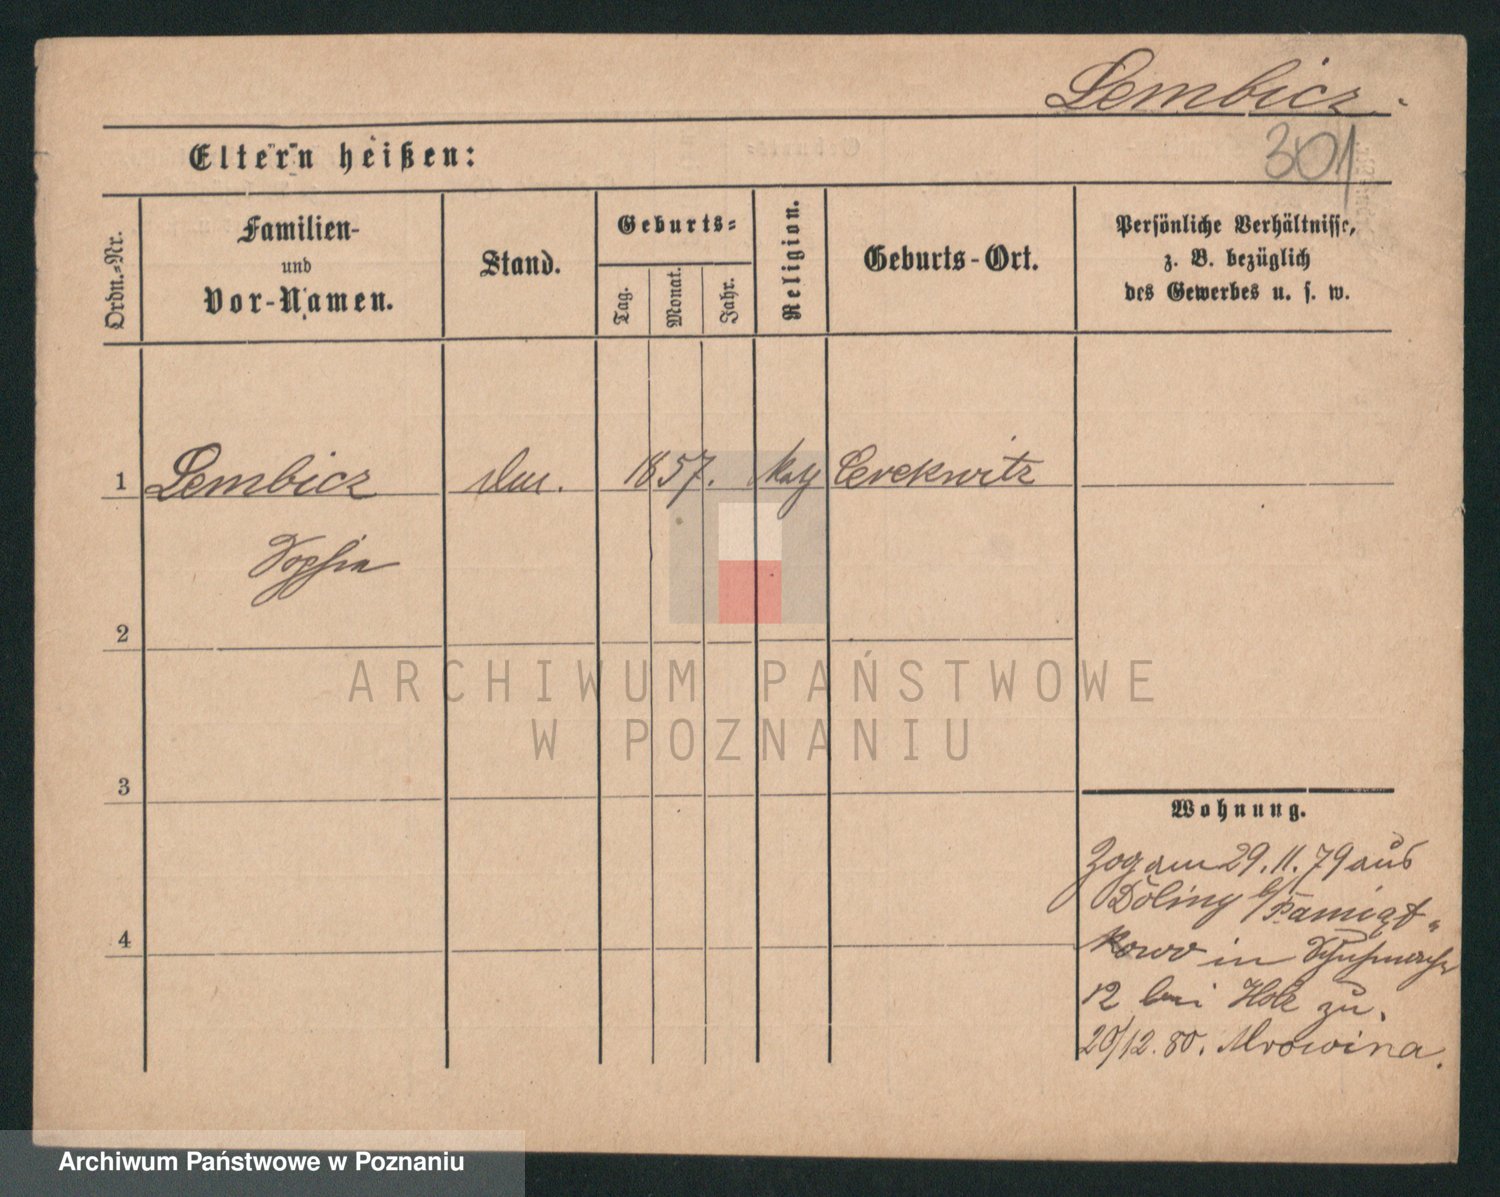 Lembicz.
301
Eltern heißen:
Ordn.-Nr.
Familien-
und
Vor-Namen.
Stand.
Geburts-
Tag.
Monat.
Jahr.
Religion.
Geburts-Ort.
Persönliche Verhältnisse,
z. B. bezüglich
des Gewerbes u. s. w.
1 Lembicz 1857. Cerekwitz
Sophia
2
3
4
Wohnung.
Zog am 29.11.79 aus
Döling b/ Pamiąt-
kowo in Schuhmacher
12 bei zu.
20/12.80. Mrowina.
ARCHIWUM PAŃSTWOWE
W POZNANIU
Archiwum Państwowe w Poznaniu